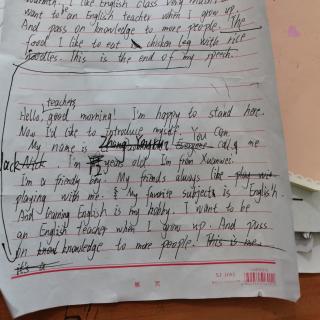 I like English class very much. I
want to be an English teacher when I grow up.
And pass on knowledge to more people. The
food I like to eat chicken leg with rice
noodles. This is the end of my speech.
teachers
Hello, good morning! I'm happy to stand here.
Now I'd like to introduce myself.
My name is You can call me
Jack I'm 12 years old. Im from Xuanwei.
I'm a friendly boy. My friends always like play wit
playing with me. My favorite subject is English
And learning English is my hobby. I want to be
an English teacher when I grow up. And pass
on knowledge to more people. This is me.
it's a